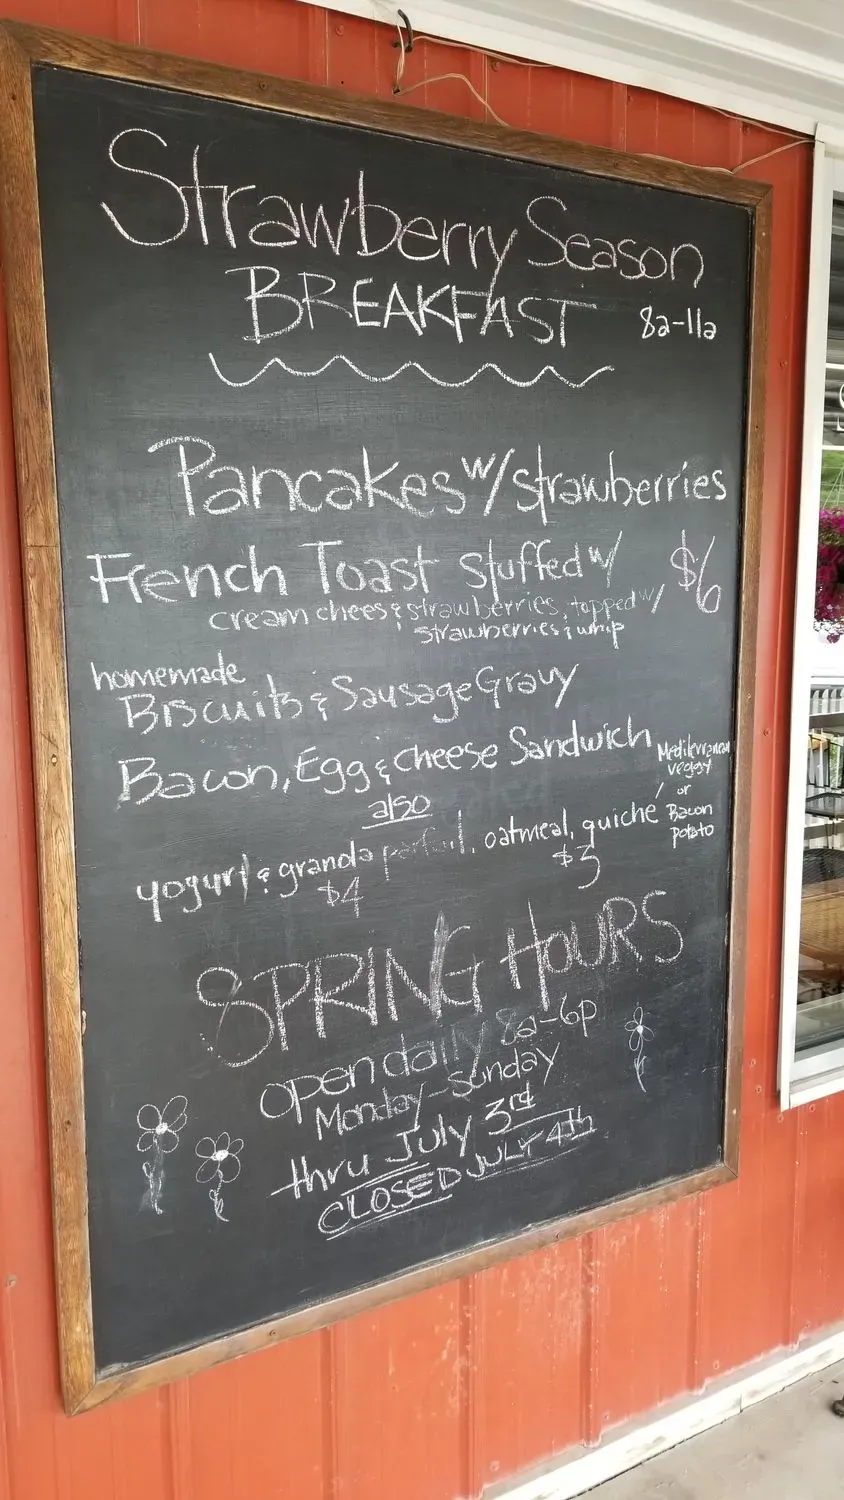 Strawberry Season
BREAKFAST 8a-11a
Pancakes w/ strawberries
French Toast stuffed w/ $6
cream chees & strawberries, topped w/
strawberries & whip
homemade
Biscuits & Sausage Gravy
Bacon, Egg & cheese Sandwich
also
yogurt & granola parfait, oatmeal, quiche
$4 $3
Mediterranean
veggy
or
Bacon
potato
SPRING HOURS
open daily 8a-6p
Monday-Sunday
thru July 3rd
CLOSED JULY 4th